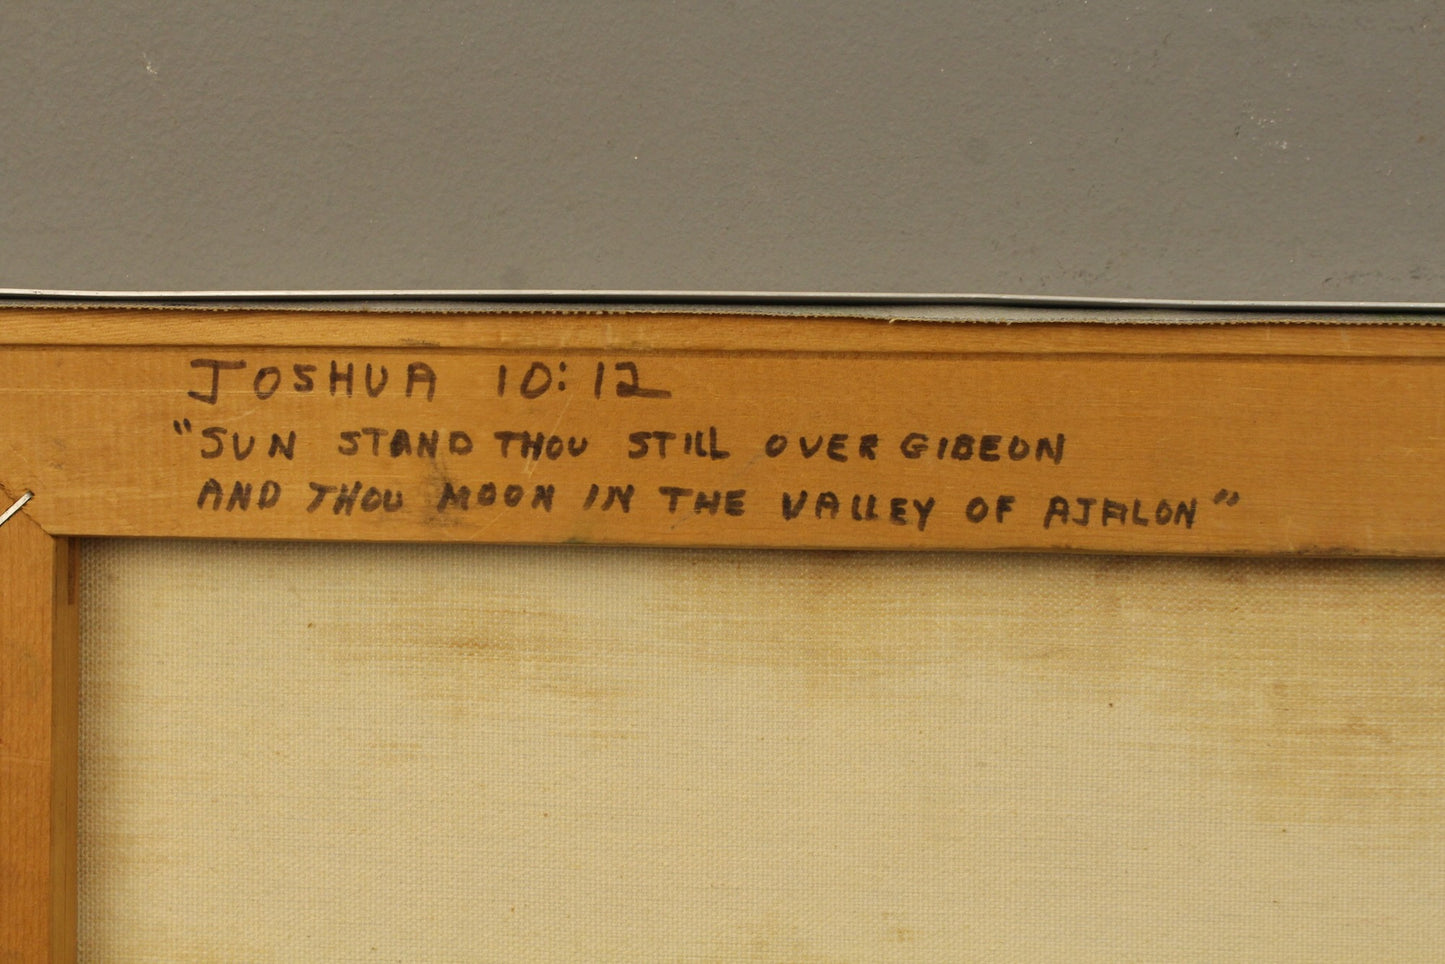 JOSHUA 10:12
"SUN STAND THOU STILL OVER GIBEON
AND THOU MOON IN THE VALLEY OF AJALON"